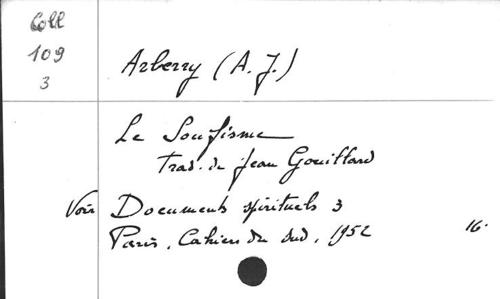 Coll
109
3
Arberry (A. J.)
Le Soufisme
Trad. de Jean Gouillard
Voir Documents spirituels 3
Paris, Cahiers du Sud, 1952 16.